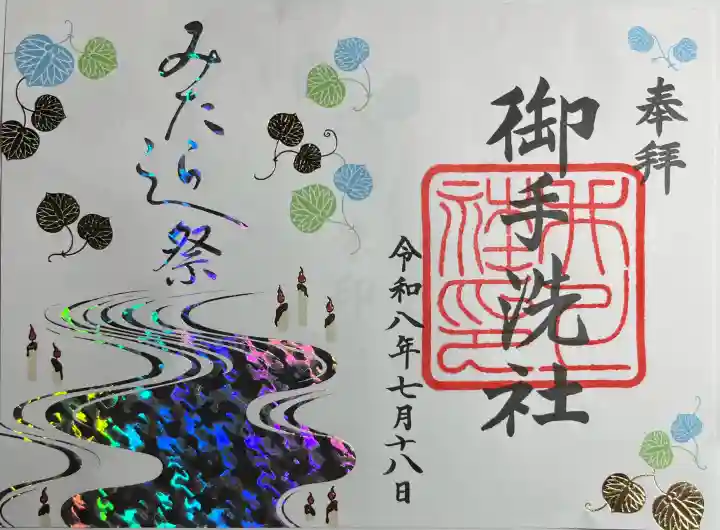 奉拝
御手洗社
令和八年七月十八日
みたらし祭